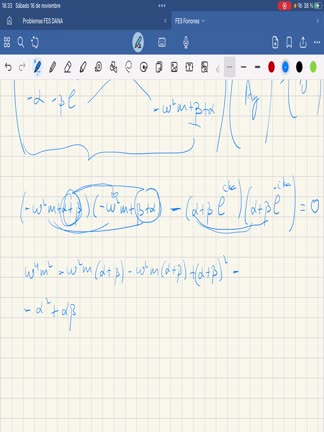 18:33 Sábado 16 de noviembre 38 %
Problemas FES DANA FES Fonones
-α -βe
-ω²m+β+α Ay
(-ω²m+α+β)(-ω²m+β+α) - (α+βe^{ika})(α+βe^{-ika}) = 0
ω⁴m² - ω²m(α+β) - ω²m(α+β) + (α+β)² -
- α² + αβ